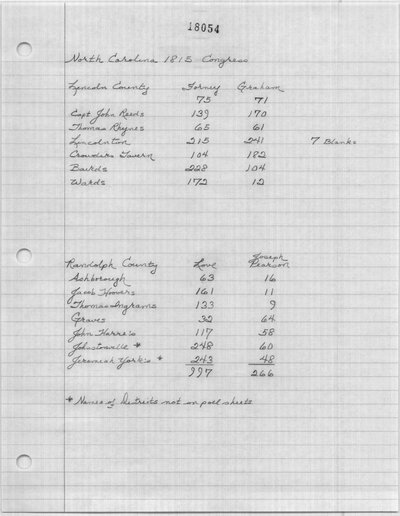 18054
North Carolina 1815 Congress
Lincoln County Forney Graham
75 71
Capt John Reeds 139 170
Thomas Rhynes 65 61
Lincolnton 215 241 7 Blanks
Crowders Tavern 104 182
Bairds 228 104
Wards 172 12
Randolph County Love Joseph Pearson
Ashborough 63 16
Jacob Hoovers 161 11
Thomas Ingrams 133 9
Graves 32 64
John Harris 117 58
Johstonville * 248 60
Jeremiah York's * 243 48
997 266
* Names of Districts not on poll sheets